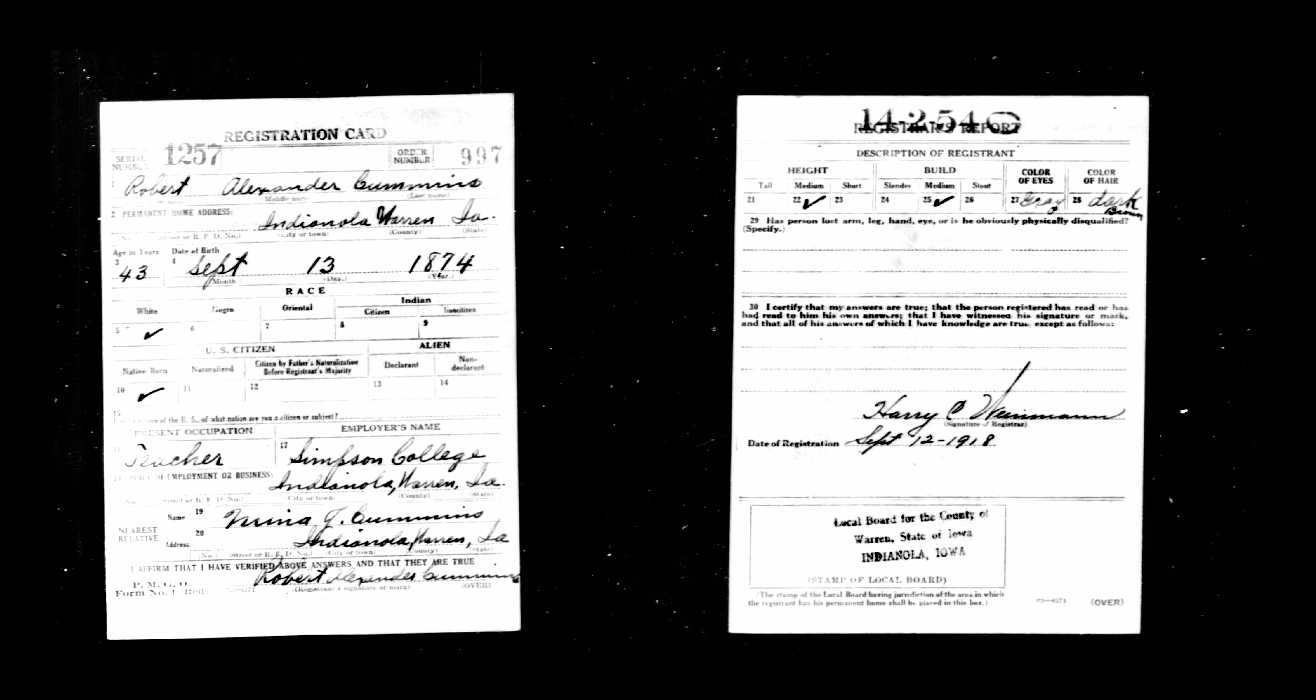 REGISTRATION CARD
SERIAL NUMBER 1257 ORDER NUMBER 997
1 Robert Alexander Cummins
Middle name Last name
2 PERMANENT HOME ADDRESS:
Indianola Warren Ia.
(No.) (Street or R. F. D. No.) (City or town) (County) (State)
Age in Years Date of Birth
3 43 4 Sept 13 1874
Month (Day.) (Year.)
RACE
White Negro Oriental Indian
Citizen Noncitizen
5 ✓ 6 7 8 9
U. S. CITIZEN ALIEN
Native Born Naturalized Citizen by Father's Naturalization Before Registrant's Majority Declarant Non-declarant
10 ✓ 11 12 13 14
15 of the U. S., of what nation are you a citizen or subject?
PRESENT OCCUPATION EMPLOYER'S NAME
Teacher 17 Simpson College
PLACE OF EMPLOYMENT OR BUSINESS:
Indianola, Warren, Ia.
(No.) (Street or R. F. D. No.) (City or town) (County) (State)
NEAREST RELATIVE Name 19 J. Cummins
Address 20 Indianola, Warren, Ia
(No.) (Street or R. F. D. No.) (City or town) (County) (State)
I AFFIRM THAT I HAVE VERIFIED ABOVE ANSWERS AND THAT THEY ARE TRUE
P. M. G. O.
Form No. 1 (Red) Robert Alexander Cummins
(Registrant's signature or mark) (OVER)
14-2-54 C
REGISTRAR'S REPORT
DESCRIPTION OF REGISTRANT
HEIGHT BUILD COLOR OF EYES COLOR OF HAIR
Tall Medium Short Slender Medium Stout
21 22 ✓ 23 24 25 ✓ 26 27 Gray 28 dark Brown
29 Has person lost arm, leg, hand, eye, or is he obviously physically disqualified?
(Specify.)
30 I certify that my answers are true; that the person registered has read or has
had read to him his own answers; that I have witnessed his signature or mark,
and that all of his answers of which I have knowledge are true, except as follows:
Harry C Weinmann
(Signature of Registrar)
Date of Registration Sept 12-1918
Local Board for the County of
Warren, State of Iowa
INDIANOLA, IOWA
(STAMP OF LOCAL BOARD)
(The stamp of the Local Board having jurisdiction of the area in which
the registrant has his permanent home shall be placed in this box.)
(OVER)